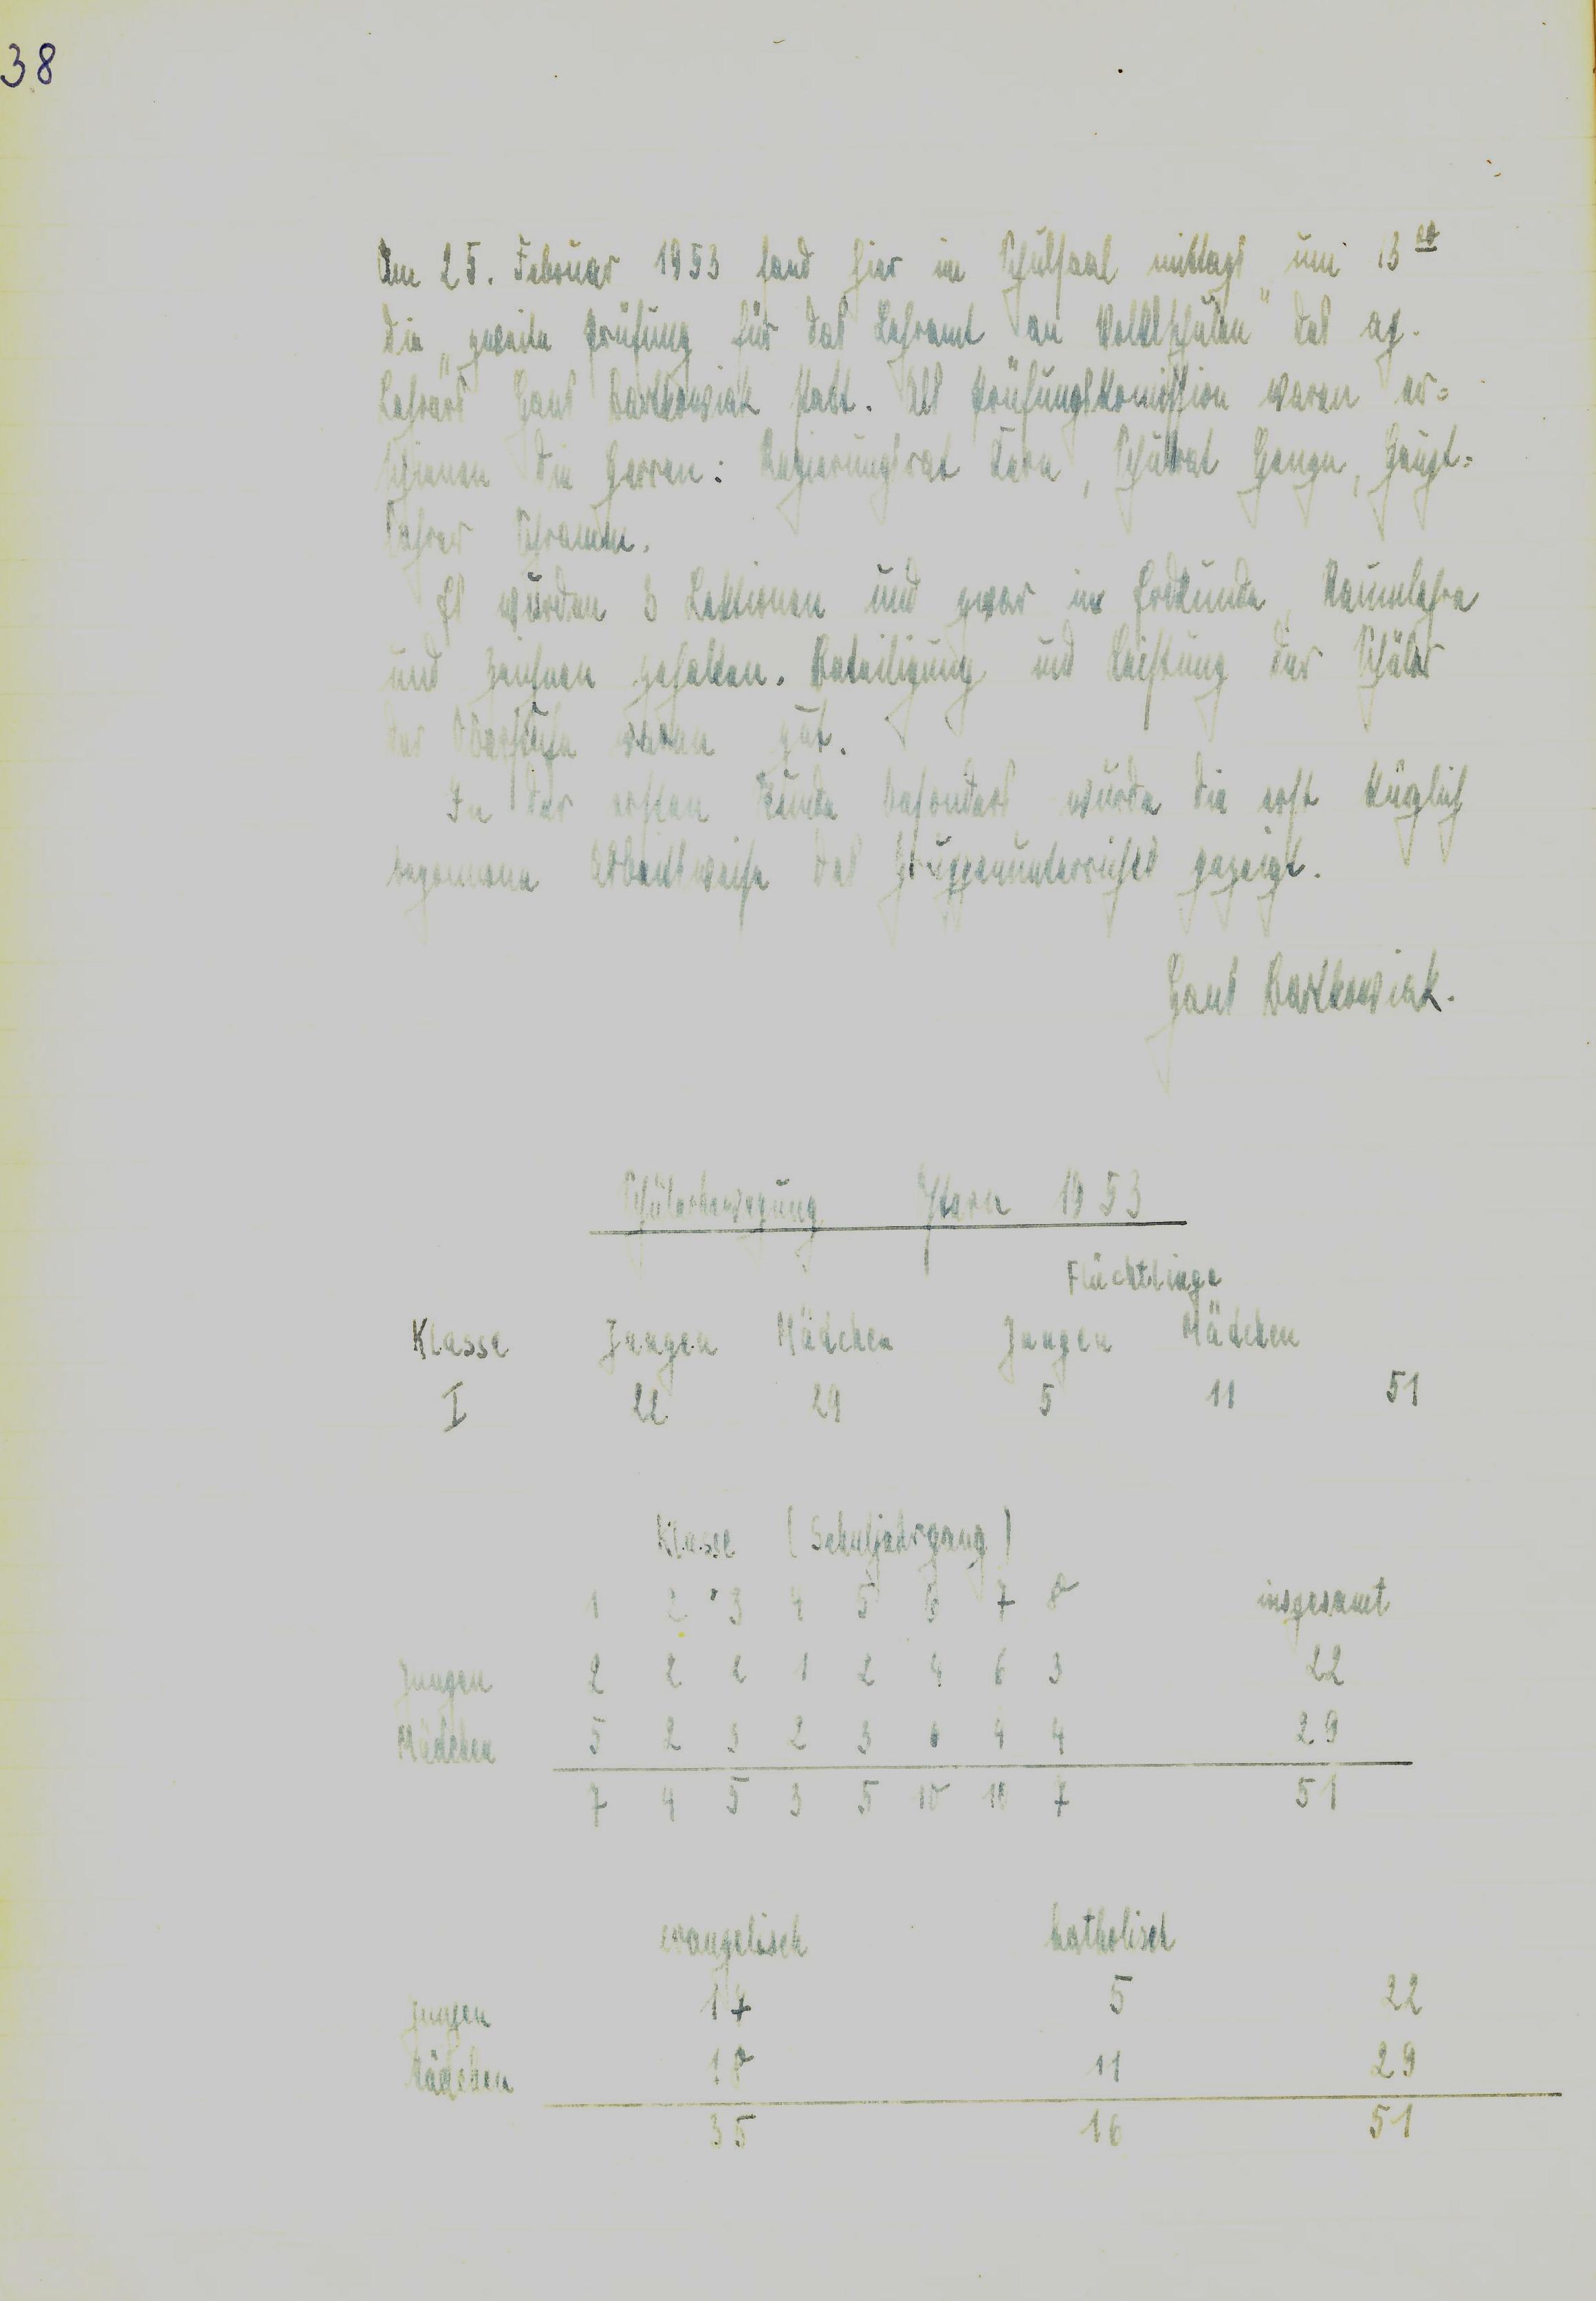 38
Am 25. Februar 1953 fand hier im Schulsaal mittags um 13 00
die „zweite Prüfung für das Lehramt an Volksschulen" des ap.
Lehrers Hans Bartkowiak statt. Als Prüfungskomission waren er=
schienen die Herren: Regierungsrat Kern, Schulrat Henge, Haupt=
lehrer Schramm.
Es wurden 3 Lektionen und zwar in Erdkunde, Raumlehre
und Zeichnen gehalten. Beteiligung und Leistung der Schüler
der Oberstufe waren gut.
In der ersten Stunde besonders wurde die erst kürzlich
begonnene Arbeitsweise des Gruppenunterrichts gezeigt.
Hans Bartkowiak.
Schülerbewegung Ostern 1953
Flüchtlinge
Klasse Jungen Mädchen Jungen Mädchen
I 22 29 5 11 51
Klasse (Schuljahrgang)
1 2 3 4 5 6 7 8 insgesamt
Jungen 2 2 2 1 2 4 6 3 22
Mädchen 5 2 3 2 3 6 4 4 29
7 4 5 3 5 10 10 7 51
evangelisch katholisch
Jungen 17 5 22
Mädchen 18 11 29
35 16 51